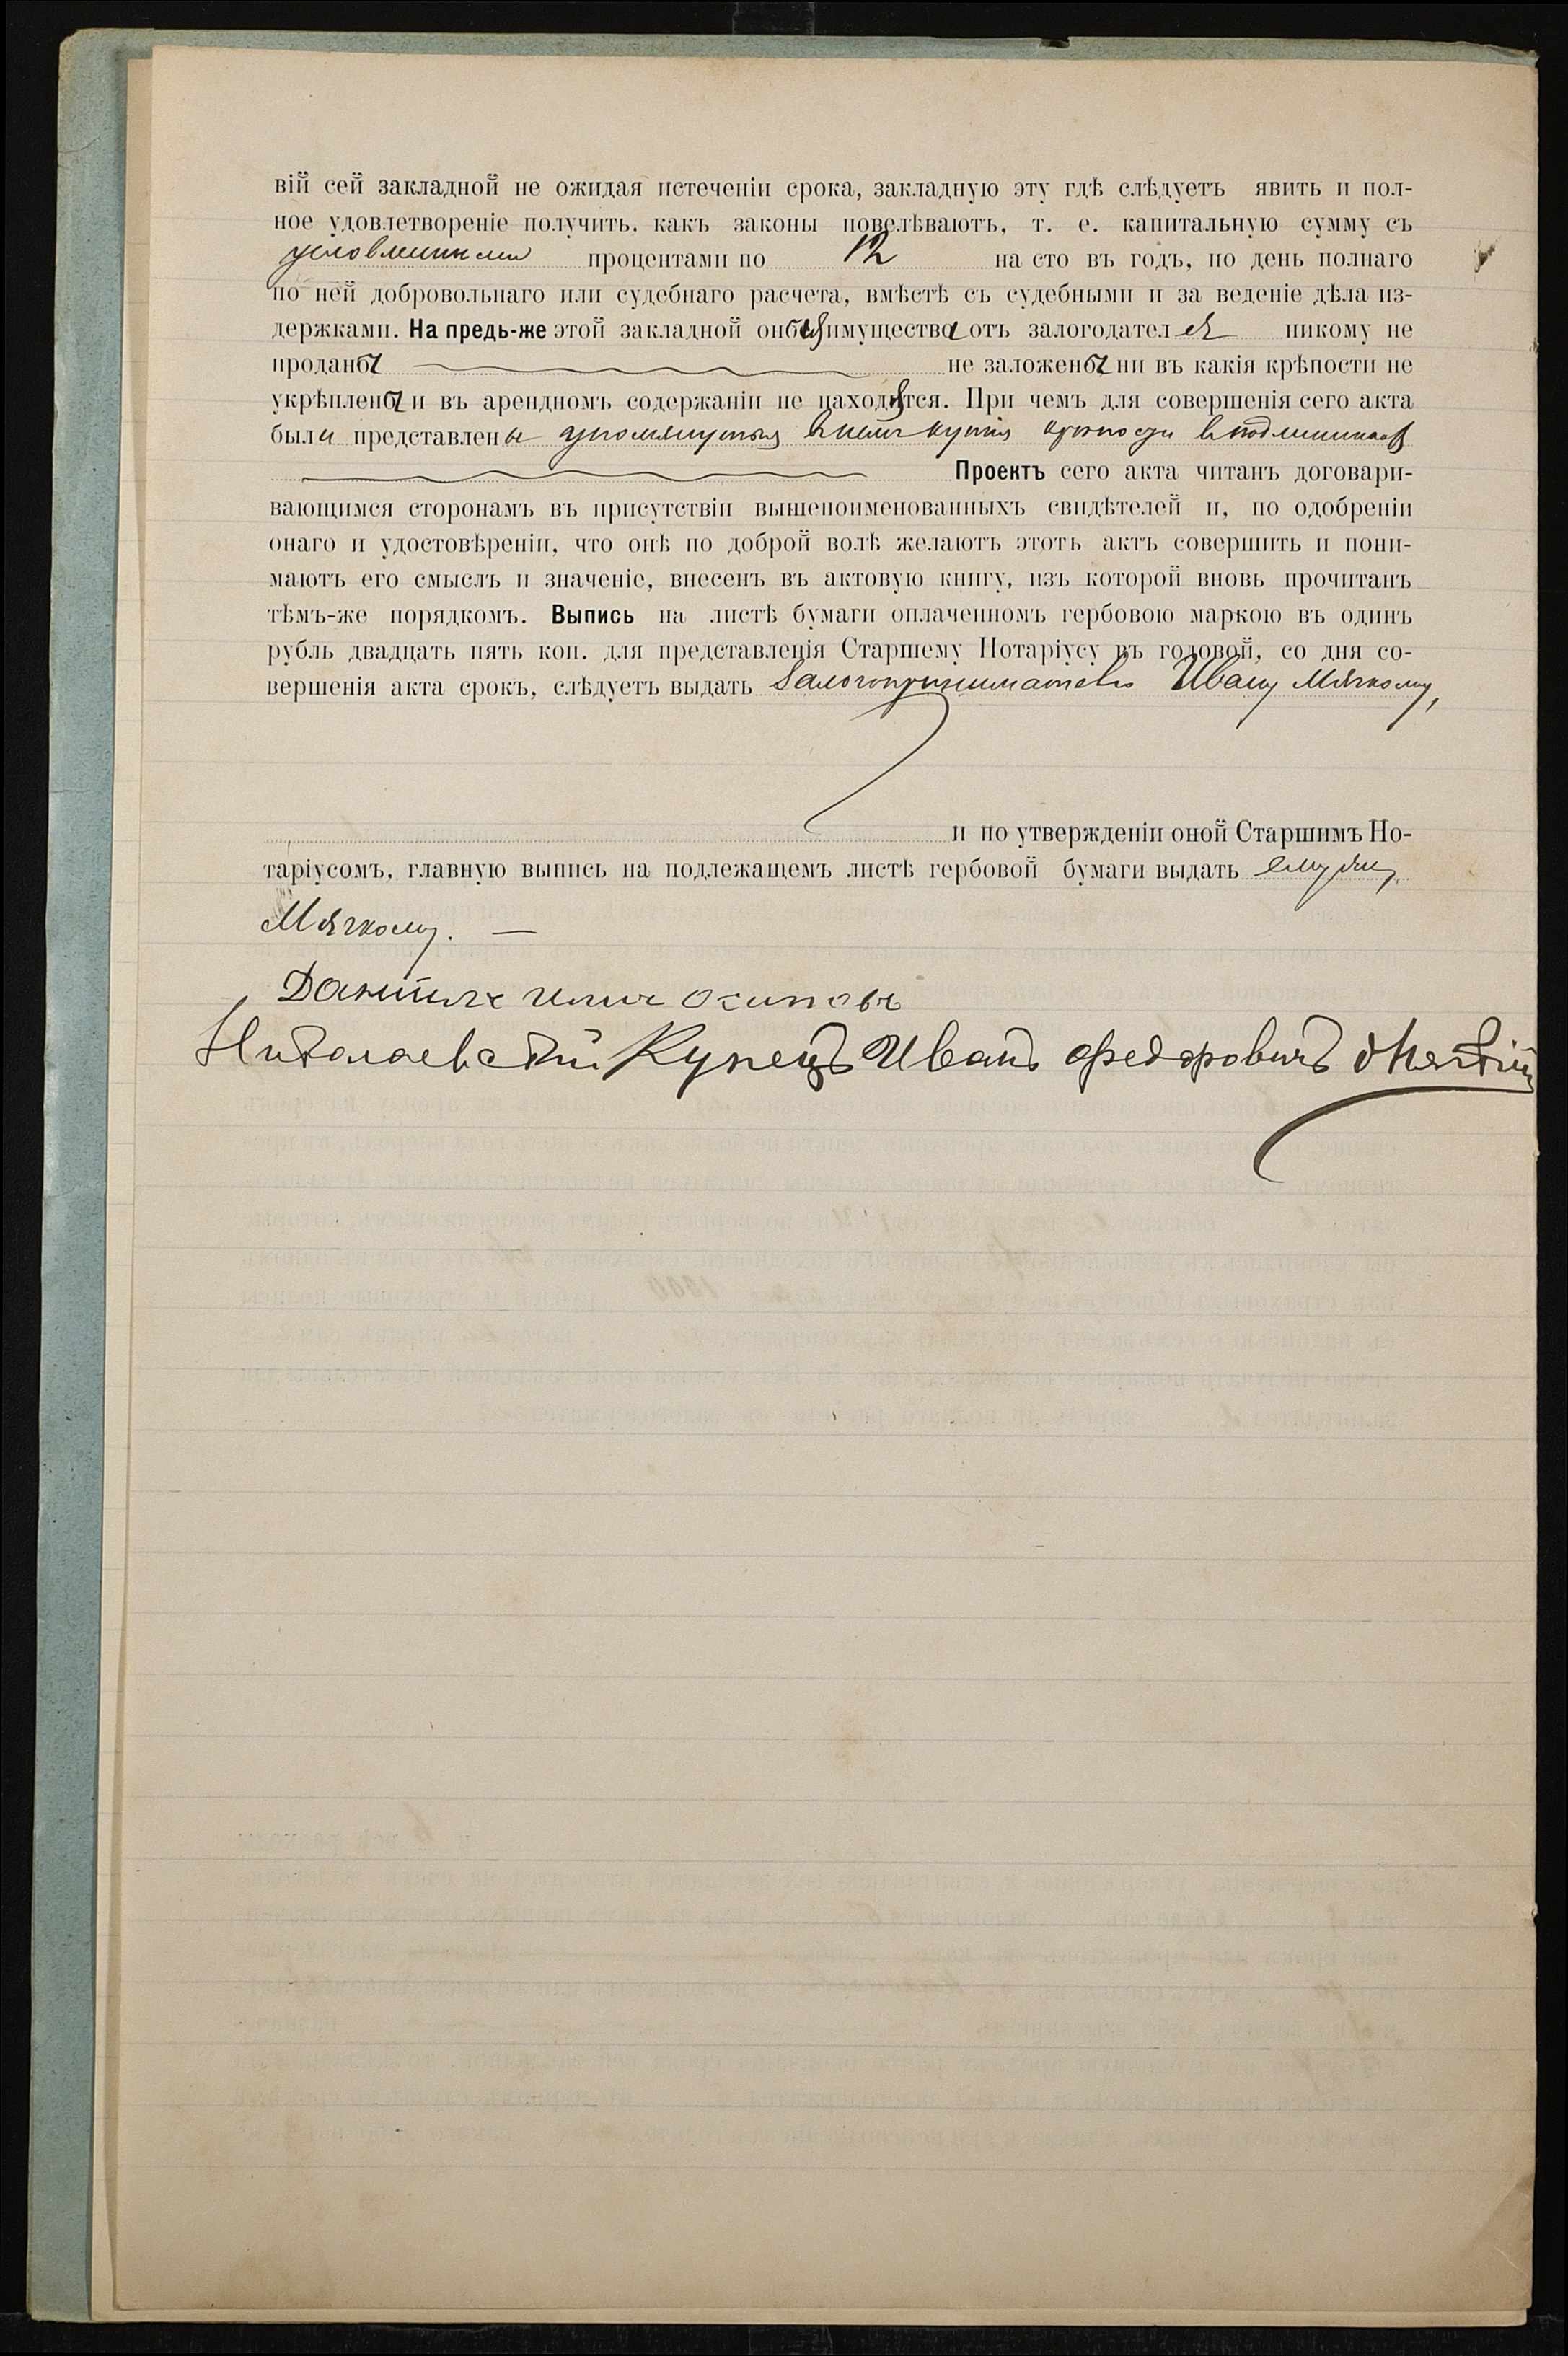 вій сей закладной не ожидая истеченіи срока, закладную эту гдѣ слѣдуетъ явить и пол-
ное удовлетвореніе получить, какъ законы повелѣваютъ, т. е. капитальную сумму съ
условленными процентами по 12 на сто въ годъ, по день полнаго
по ней добровольнаго или судебнаго расчета, вмѣстѣ съ судебными и за веденіе дѣла из-
держками. На предь-же этой закладной оныя имущества отъ залогодателя никому не
проданы не заложены ни въ какія крѣпости не
укрѣплены и въ арендномъ содержаніи не находятся. При чемъ для совершенія сего акта
были представлены упомянутыя въ нем купчія крѣпости въ подлинникахъ
Проектъ сего акта читанъ договари-
вающимся сторонамъ въ присутствіи вышепоименованныхъ свидѣтелей и, по одобреніи
онаго и удостовѣреніи, что онѣ по доброй волѣ желаютъ этотъ актъ совершить и пони-
маютъ его смыслъ и значеніе, внесенъ въ актовую книгу, изъ которой вновь прочитанъ
тѣмъ-же порядкомъ. Выпись на листѣ бумаги оплаченномъ гербовою маркою въ одинъ
рубль двадцать пять коп. для представленія Старшему Нотаріусу въ годовой, со дня со-
вершенія акта срокъ, слѣдуетъ выдать Залогопринимателю Ивану Мягкому,
и по утвержденіи оной Старшимъ Но-
таріусомъ, главную выпись на подлежащемъ листѣ гербовой бумаги выдать ему же,
Мягкому. —
Осиповъ
Николаевскій Купецъ Иванъ Федоровичъ Мягкій